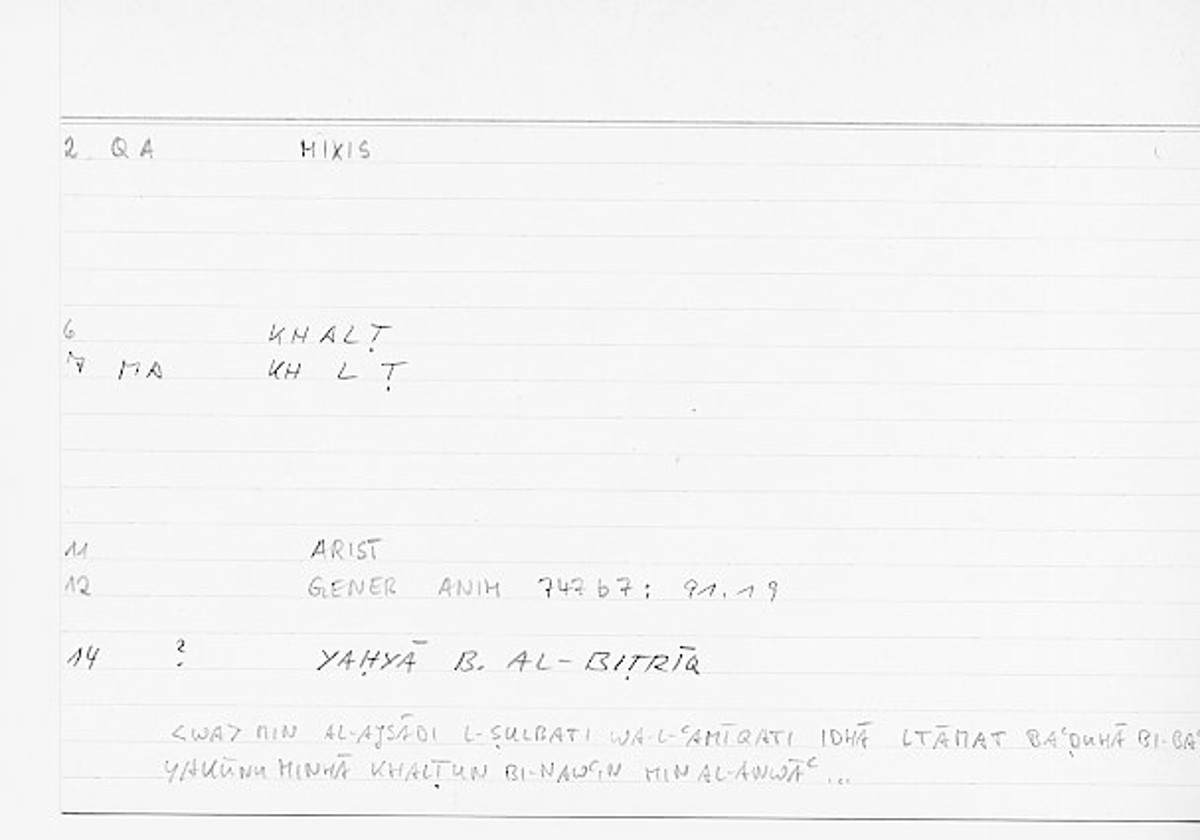 2 QA MIXIS
6 KHALṬ
7 MA KH L Ṭ
11 ARIST
12 GENER ANIM 747 b 7: 91.19
14 ? YAḤYĀ B. AL-BIṬRĪQ
<WA> MIN AL-AJSĀDI L-ṢULBATI WA-L-ᶜAMĪQATI IDHĀ LTĀMAT BAᶜḌUHĀ BI-BAᶜ
YAKŪNU MINHĀ KHALṬUN BI-NAWᶜIN MIN AL-ANWĀᶜ...